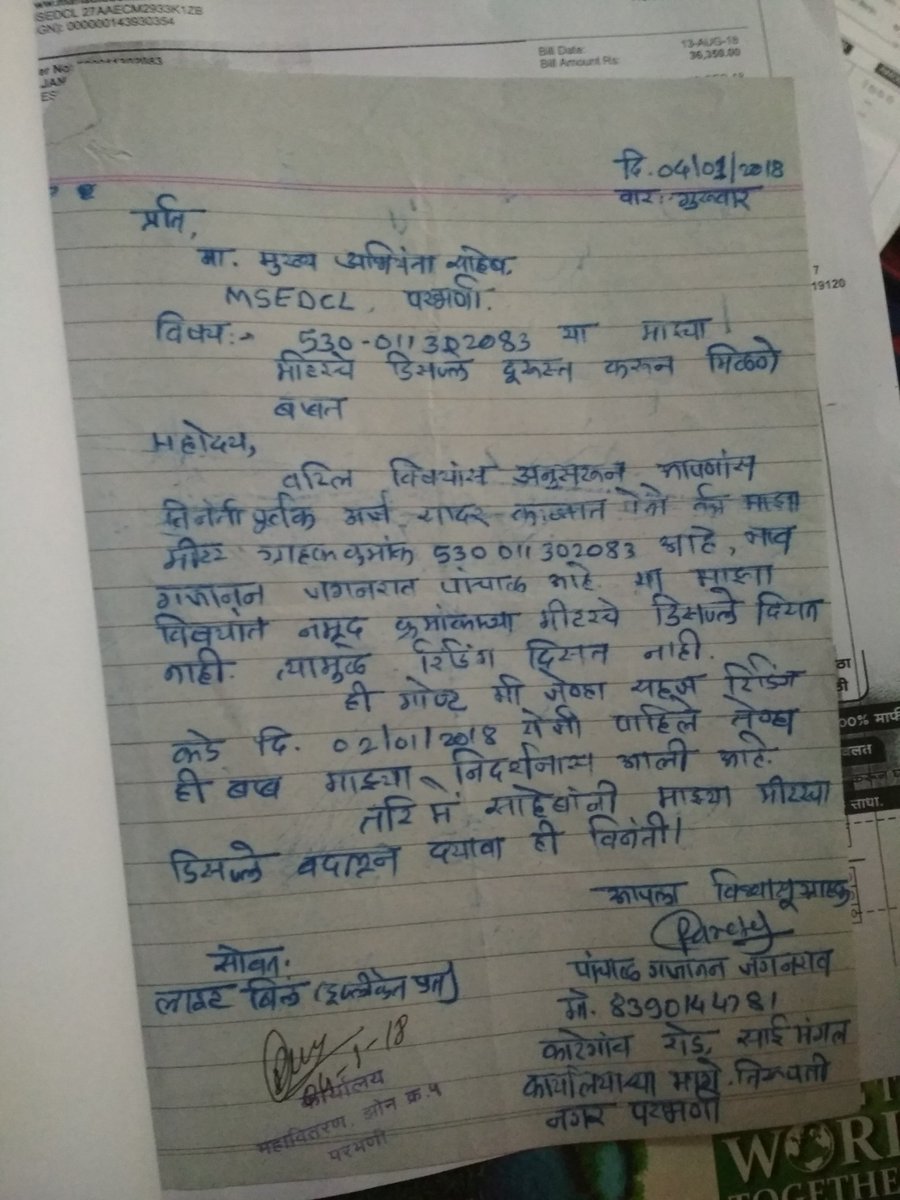 SEDCL 27AAECM2933K1ZB
GN): 000000143930354
Bill Date: 13-AUG-18
Bill Amount Rs: 36,350.00
दि. 04/01/2018
वार: गुरूवार
प्रति,
मा. मुख्य अभियंता साहेब.
MSEDCL, परभणी.
विषय:- 530-011302083 या माझ्या
मीटरचे डिसप्ले दूरूस्त करून मिळणे
बाबत
महोदय,
वरिल विषयांस अनुसरून आपणांस
विनंती पुर्वक अर्ज सादर करण्यात येतो की माझा
मीटर ग्राहक क्रमांक 530011302083 आहे, नाव
गजानन जगनराव पांचाळ आहे. या माझ्या
विषयांत नमूद क्रमांकाच्या मीटरचे डिसप्ले दिसत
नाही. त्यामुळे रिडिंग दिसत नाही.
ही गोष्ट मी जेव्हा सहज रिडिंग
कडे दि. 02/01/2018 रोजी पाहिले तेव्हा
ही बाब माझ्या निदर्शनास आली आहे.
तरि मे. साहेबांनी माझ्या मीटरचा
डिसप्ले बदलून दयावा ही विनंती।
आपला विश्वासू ग्राहक
सोबत:
लाइट बिल (डुप्लीकेत प्रत)
पांचाळ गजानन जगनराव
मो. 8390144781
कारेगांव रोड, साई मंगल
कार्यालयाच्या मागे तिरूपती
नगर परभणी
4-1-18
कार्यालय
महावितरण, झोन क्र. ५
परभणी
7
19120
00% माफ
WORL
TOGETHE